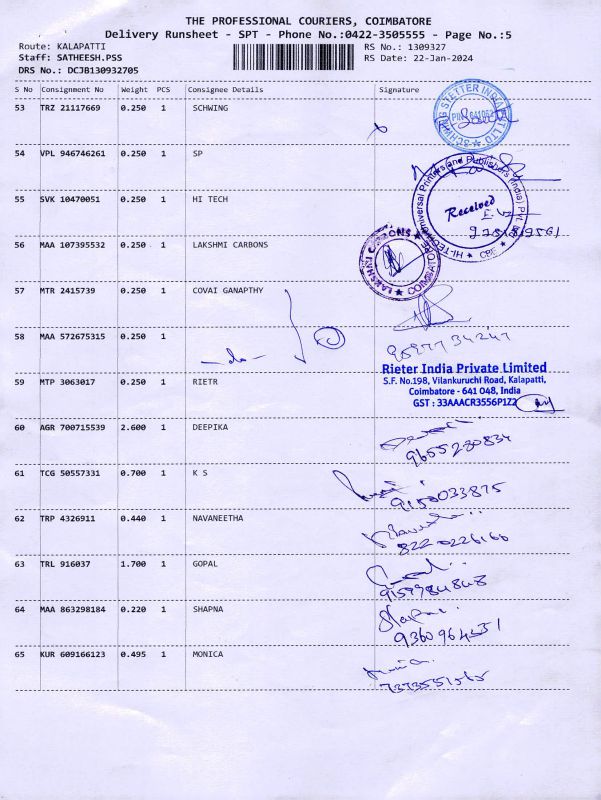 THE PROFESSIONAL COURIERS, COIMBATORE
Delivery Runsheet - SPT - Phone No.:0422-3505555 - Page No.:5
Route: KALAPATTI
Staff: SATHEESH.PSS
DRS No.: DCJB130932705
RS No.: 1309327
RS Date: 22-Jan-2024
S No Consignment No Weight PCS Consignee Details Signature
53 TRZ 21117669 0.250 1 SCHWING
54 VPL 946746261 0.250 1 SP
55 SVK 10470051 0.250 1 HI TECH
Received
56 MAA 107395532 0.250 1 LAKSHMI CARBONS
LAKSHMI CARBONS ★ COIMBATORE
57 MTR 2415739 0.250 1 COVAI GANAPTHY
58 MAA 572675315 0.250 1
-do-
59 MTP 3063017 0.250 1 RIETR
Rieter India Private Limited
S.F. No.198, Vilankuruchi Road, Kalapatti,
Coimbatore - 641 048, India
GST : 33AAACR3556P1Z2
60 AGR 700715539 2.600 1 DEEPIKA
9655230834
61 TCG 50557331 0.700 1 K S
9150033875
62 TRP 4326911 0.440 1 NAVANEETHA
8220226160
63 TRL 916037 1.700 1 GOPAL
9159784848
64 MAA 863298184 0.220 1 SHAPNA
Shapna
9360964331
65 KUR 609166123 0.495 1 MONICA
7373551565